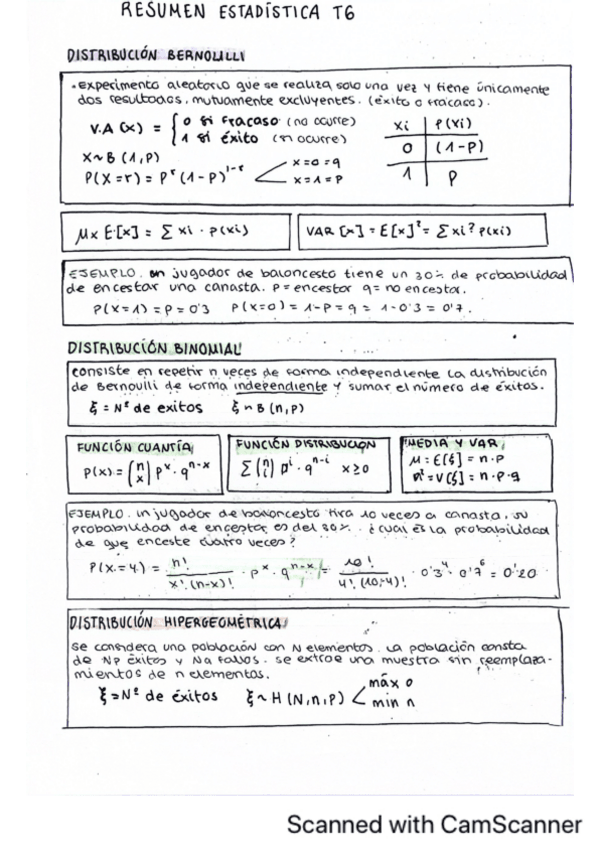 RESUMEN ESTADÍSTICA T6
DISTRIBUCIÓN BERNOULLI
• Experimento aleatorio que se realiza solo una vez y tiene únicamente
dos resultados, mutuamente excluyentes. (éxito o fracaso).
V.A (x) = { 0 si fracaso (no ocurre)
1 si éxito (si ocurre)
xi | P(xi)
0 | (1-P)
1 | P
X~B (1,P)
P(X=r) = P^r (1-P)^1-r < x=0=q
x=1=P
μx E[x] = Σ xi · p(xi)
VAR [x] = E[x]² = Σ xi² p(xi)
EJEMPLO. un jugador de baloncesto tiene un 30% de probabilidad
de encestar una canasta. P= encestar q= no encestar.
P(x=1)=P=0'3 P(x=0)=1-P=q=1-0'3=0'7.
DISTRIBUCIÓN BINOMIAL
consiste en repetir n veces de forma independiente la distribución
de Bernoulli de forma independiente y sumar el número de éxitos.
ξ = Nº de exitos ξ ~ B (n,p)
FUNCIÓN CUANTÍA
P(x) = (n x) p^x · q^n-x
FUNCIÓN DISTRIBUCION
Σ (n i) p^i · q^n-i x≥0
MEDIA Y VAR
μ: E[ξ] = n·p
σ²=V[ξ] = n·p·q
EJEMPLO. un jugador de baloncesto tira 10 veces a canasta, su
probabilidad de encestar es del 30%. ¿cual es la probabilidad
de que enceste cuatro veces?
P(x=4) = n! / x!(n-x)! · p^x · q^n-x = 10! / 4!(10-4)! · 0'3^4 · 0'7^6 = 0'20
DISTRIBUCIÓN HIPERGEOMÉTRICA
se considera una población con N elementos. La población consta
de Np éxitos y Nq fallos. se extrae una muestra sin reemplaza-
mientos de n elementos.
ξ = Nº de éxitos ξ ~ H (N,n,P) < máx 0
min n
Scanned with CamScanner